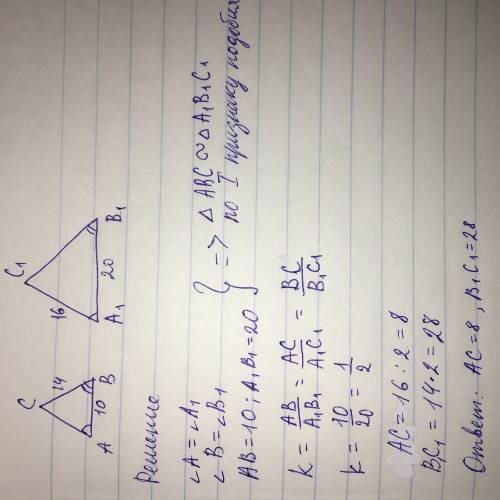 C
14
A 10 B
C₁
16
A₁ 20 B₁
Решение
∠A=∠A₁
∠B=∠B₁
AB=10; A₁B₁=20 } => △ABC ∾ △A₁B₁C₁
по I признаку подобия
k = AB/A₁B₁ = AC/A₁C₁ = BC/B₁C₁
k = 10/20 = 1/2
AC=16:2=8
B₁C₁=14·2=28
Ответ: AC=8, B₁C₁=28